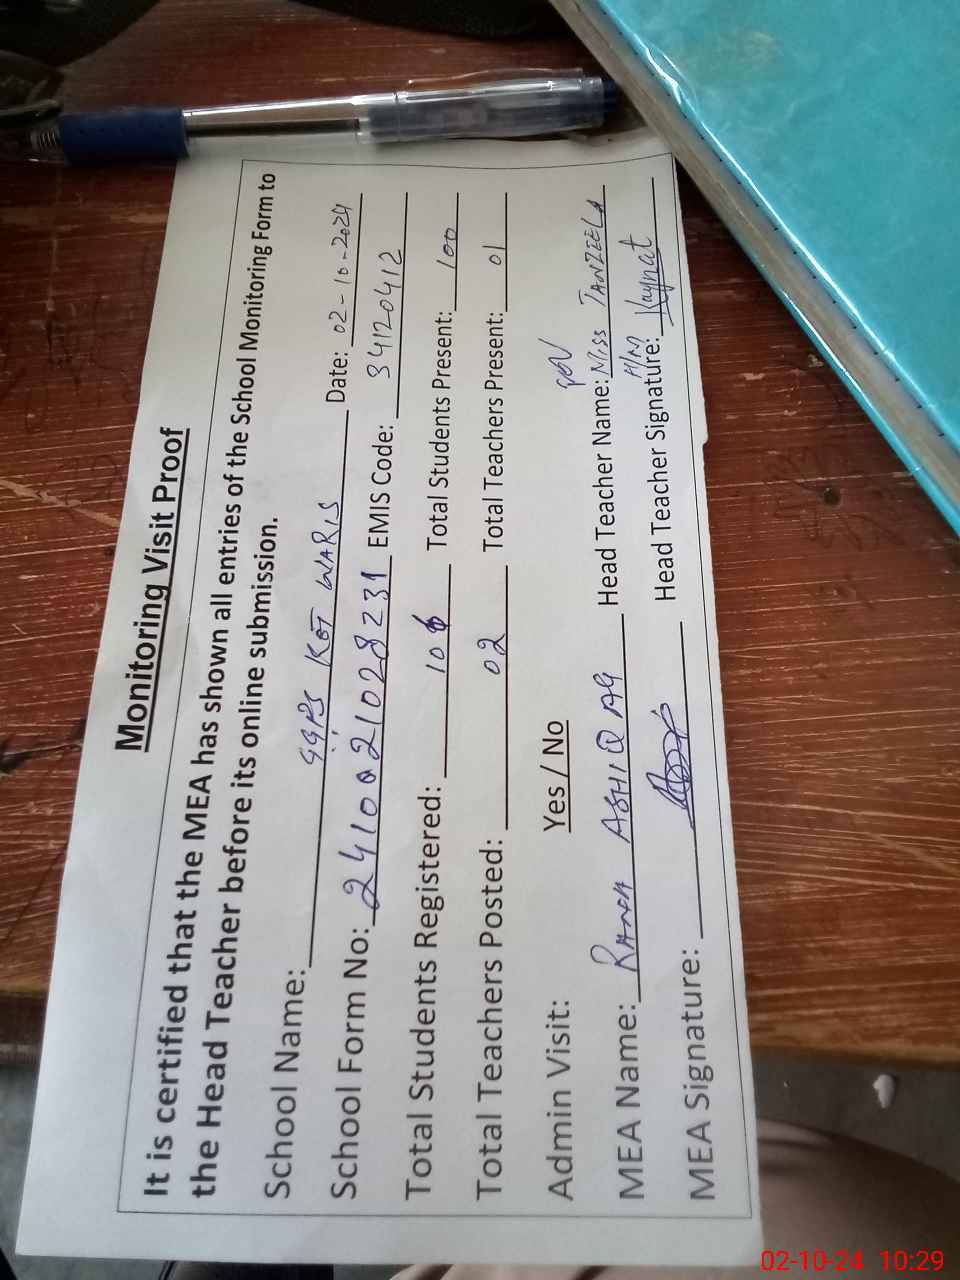 Monitoring Visit Proof
It is certified that the MEA has shown all entries of the School Monitoring Form to
the Head Teacher before its online submission.
School Name: GGPS KOT WARIS Date: 02-10-2024
School Form No: 2410021028231 EMIS Code: 34120412
Total Students Registered: 106 Total Students Present: 100
Total Teachers Posted: 02 Total Teachers Present: 01
Admin Visit: Yes / No
MEA Name: RANA ASHIQ Ali Head Teacher Name: Miss TANZEELA
MEA Signature: Head Teacher Signature: Kaynat
02-10-24 10:29